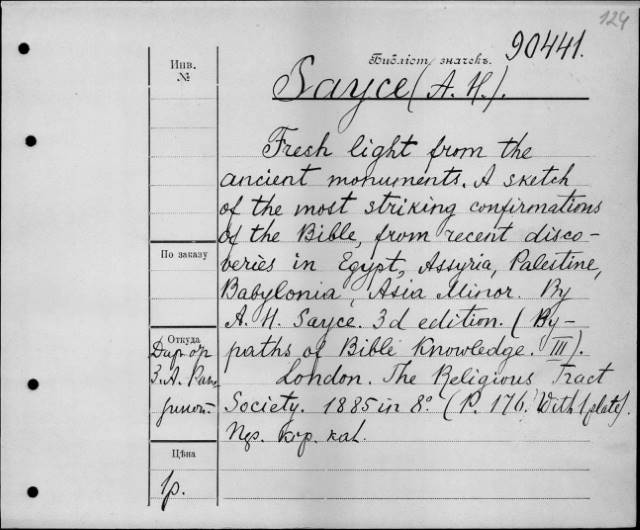 124
90441.
Библіот. значекъ.
Инв.
№
Sayce (A. H.).
Fresh light from the
ancient monuments. A sketch
of the most striking confirmations
of the Bible, from recent disco-
veries in Egypt, Assyria, Palestine,
Babylonia, Asia Minor. By
A. H. Sayce. 3d edition. (By-
paths of Bible Knowledge. III).
London. The Religious Tract
Society. 1885 in 8°. (P. 176. With 1 plate).
кор. кал.
По заказу
Откуда
Даръ отъ
З. А. Раго-
Цѣна
1р.